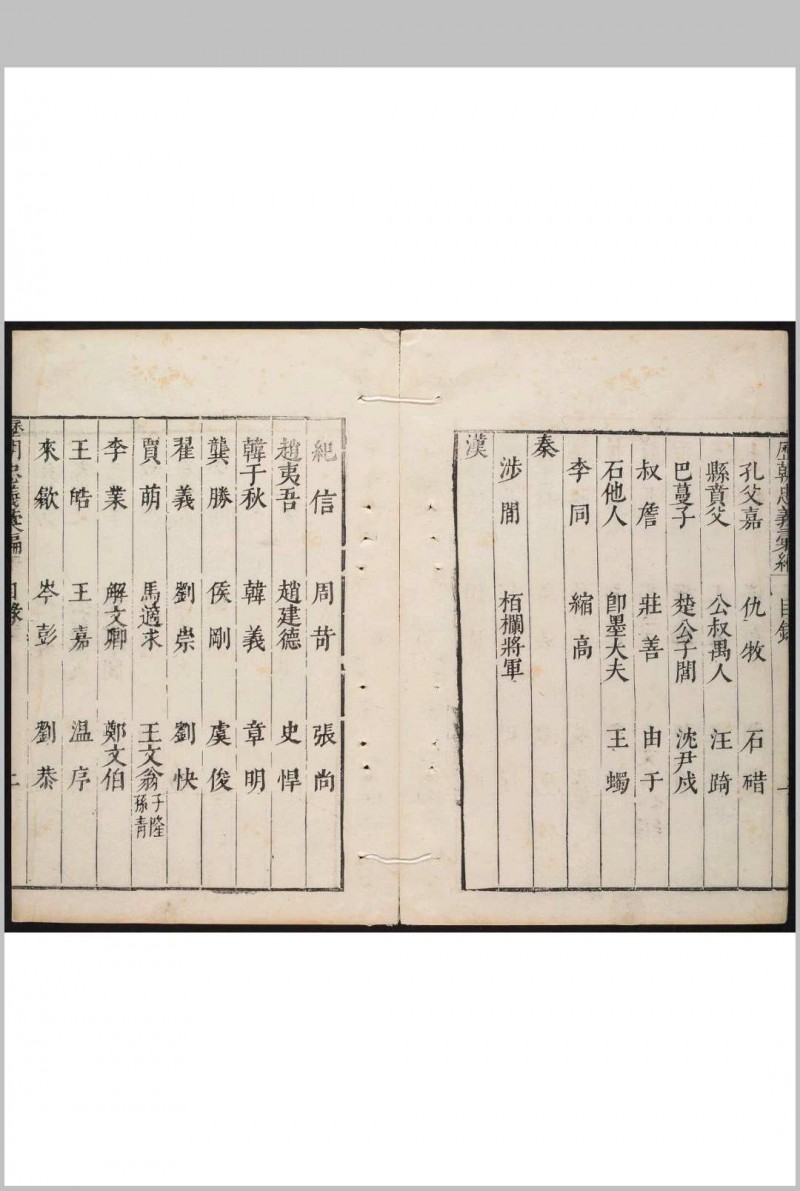 歷朝忠義彙編 目錄
孔父嘉 仇牧 石碏
縣賁父 公叔禺人 汪踦
巴蔓子 楚公子閭 沈尹戌
叔詹 莊善 由于
石他人 卽墨大夫 王蠋
李同 縮高
秦
涉閒 栢欄將軍
漢
紀信 周苛 張尚
趙夷吾 趙建德 史悍
韓千秋 韓義 章明
龔勝 侯剛 虞俊
翟義 劉崇 劉快
賈萌 馬適求 王文翁子隆孫青
李業 解文卿 鄭文伯
王皓 王嘉 温序
來歙 岑彭 劉恭
歷朝忠義彙編 目錄 二